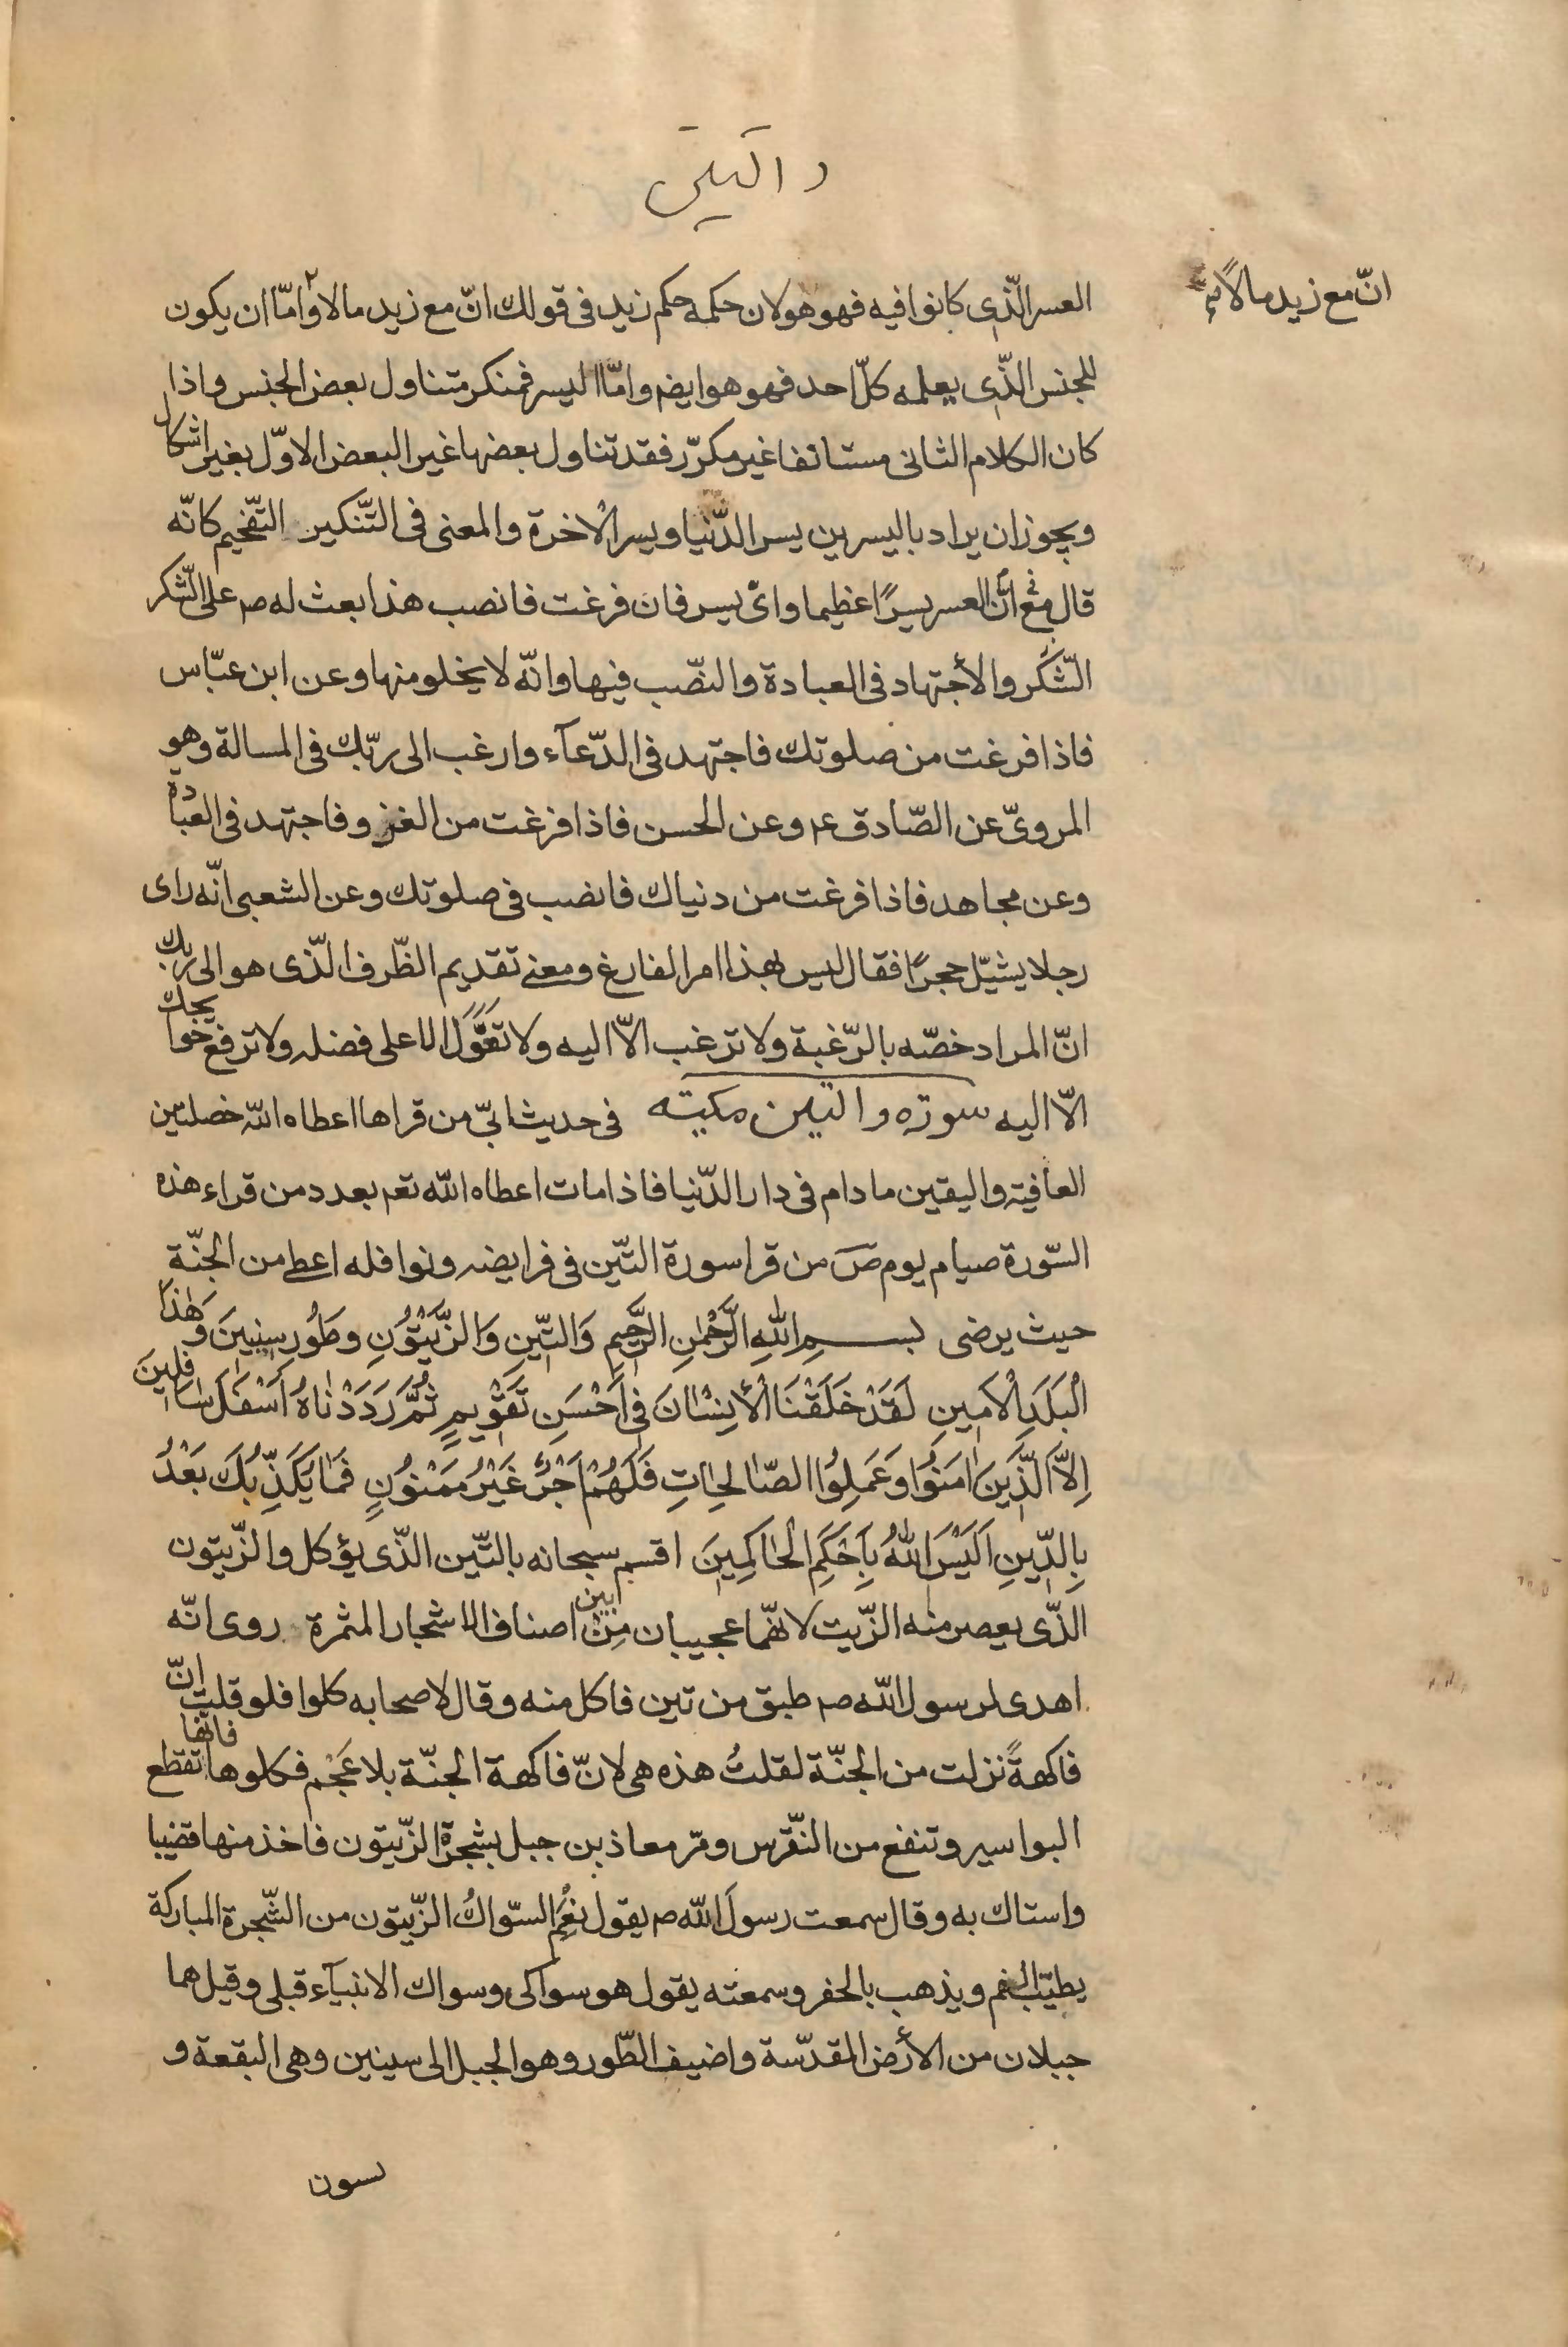 والتين
انّ مع زيد مالاً
العسر الّذى كانوا فيه فهو هو لان حكمه حكم زيد فى قولك انّ مع زيد مالا وامّا ان يكون
للجنس الذّى يعلمه كلّ احد فهو هو ايضم وامّا اليسر فمنكر متناول بعض الجنس واذا
كان الكلام الثانى مستانفا غير مكرّر فقد تناول بعضها غير البعض الاوّل بغير اشكال
ويجوز ان يراد باليسرين يسر الدّنيا ويسر الاخرة والمعنى فى التّنكير التّفخيم كانّه
قال انّ مع العسر يسرًا عظيما واىّ يسر فان فرغت فانصب هذا بعث له ص على الشّكر
الشّكر والأجتهاد فى العبادة والنصّب فيها وانّه لا يخلو منها وعن ابن عبّاس
فاذا فرغت من صلوتك فاجتهد فى الدّعآء وارغب الى ربّك فى المسالة وهو
المروىّ عن الصّادق ع وعن الحسن فاذا فرغت من الغزو فاجتهد فى العبادة
وعن مجاهد فاذا فرغت من دنياك فانصب فى صلوتك وعن الشعبى انّه راى
رجلا يشيّل حجرًا فقال ليس بهذا امر الفارغ ومعنى تقديم الظّرف الّذى هو الى ربّك
انّ المراد خصّه بالرّغبة ولا ترغب الاّ اليه ولا تعوّل الا على فضله ولا ترفع حوايجك
الاّ اليه سورة والتين مكيته فى حديث ابىّ من قراها اعطاه اللّه خصلتين
العافية واليقين ما دام فى دار الدّنيا فاذا مات اعطاه اللّه تعم بعدد من قراء هذه
السّورة صيام يوم ص من قرا سورة التّين فى فرايضه ونوافله اعطى من الجنّة
حيث يرضى بسم اللّهِ الرَّحْمٰنِ الرَّحيمِ وَالتّينِ وَالزَّيْتُونِ وطُورِ سينينَ وَهٰذا
الْبَلَدِ الْاَمينِ لَقَدْ خَلَقْنَا الْأِنْسٰانَ فى اَحْسَنِ تَقْويمٍ ثُمَّ رَدَدْنٰاهُ اَسْفَلَ سٰافِلينَ
اِلاَّ الَّذينَ اٰمَنُوا وَعَمِلُوا الصّٰالِحٰاتِ فَلَهُمْ اَجْرٌ غَيْرُ مَمْنُونٍ فَمٰا يُكَذِّبُكَ بَعْدُ
بِالدّينِ اَلَيْسَ اللّهُ بِاَحْكَمِ الْحٰاكِمينَ اقسم سبحانه بالتّين الذّى يؤكل والزّيتون
الذّى يعصر منه الزّيت لانهّما عجيبان مِنْ بين اصناف الاشجار المثمرة روى انّه
اهدى لرسول اللّه ص طبق من تين فاكل منه وقال لاصحابه كلوا فلو قلت انّ
فاكهةً نزلت من الجنّة لقلتُ هذه هى لانّ فاكهة الجنّة بلا عَجْم فكلوها فانّها تقطع
البواسير وتنفع من النّقرس ومرّ معاذ بن جبل بشجرة الزّيتون فاخذ منها قضيبا
واستاك به وقال سمعت رسولَ اللّه ص يقول نِعْمَ السّواكُ الزّيتون من الشّجرة المباركة
يطيّب الفم ويذهب بالحفر وسمعته يقول هو سواكى وسواك الانبيآء قبلى وقيل هما
جبلان من الأرض المقدّسة واضيف الطّور وهو الجبل الى سينين وهى البقعة و